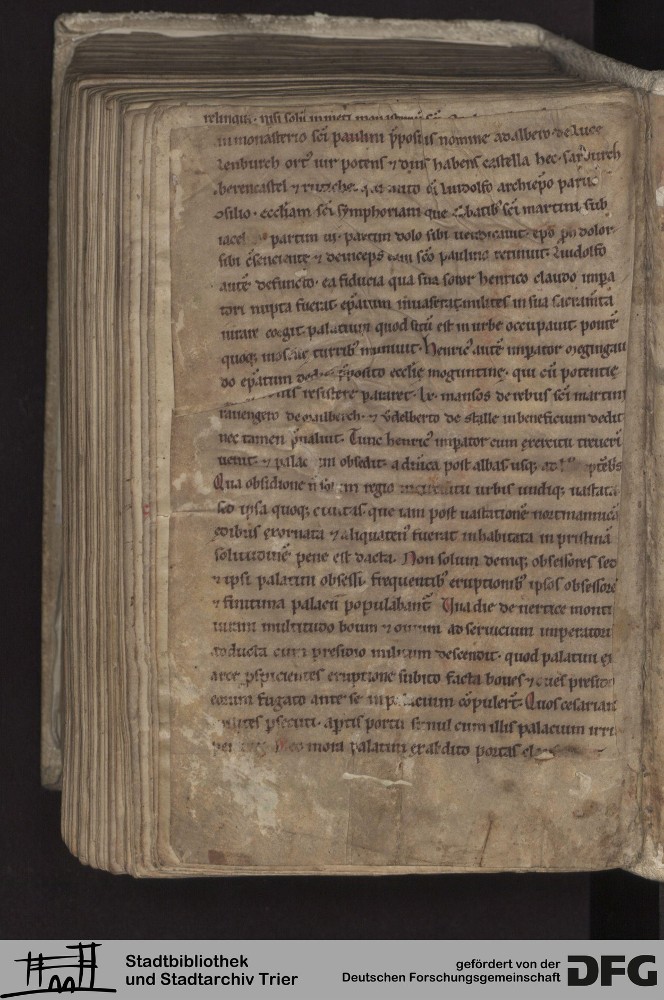 relinq͛t. ipsi soli
in monasterio sc̄i paulini p̄positus nomine adalbero. de luce
lenburch ort᷒ uir potens ⁊ diuꝰ habens castella hec. sarburch
berencastel ⁊
osilio. eccl̄iam sc̄i symphoriani que abatib᷒ sc̄i martini sub
iacebat partim ui. partim dolo sibi uendicauit. ep̄o p̄
sibi c̄senciente ⁊ deinceps eam sc̄o paulino retinuit. Ludolfo
autē defuncto. ea fiducia qua sua soror henrico claudo impa
tori nupta fuerat. ep̄atum inuaserat. milites in sua sacram̄ta
iurare coegit. palatium quod sitū est in urbe occupauit. pontē
quoq; moselle turrib᷒ muniuit. Henric᷒ autē imperator megingau
do ep̄atum dedit p̄posito eccl̄ie moguntine. qui cū potentie
resistere pararet. lx. mansos de rebus sc̄i martini
nauengero de mailberch. ⁊ udelberto de stalle in beneficium dedit
nec tamen p̄ualuit. Tunc henric᷒ imp̄ator cum exercitu treueri
uenit. ⁊ palacium obsedit. a diuica post albas usq; ad
Qua obsidione n̄ solum regio in circuitu urbis undiq; uastata
sed ipsa quoq; ciuitas. que iam post uastationē nortmannicā
edibus exornata ⁊ aliquaten᷒ fuerat inhabitata in pristinā
solitudinē pene est dacta. Non solum deniq; obsessores sed
⁊ ipsi palatini obsessi. frequentib᷒ eruptionib᷒ ipsos obsessores
⁊ finitima palacii populabant᷑. Una die de uertice monti
uium multitudo boum ⁊ ouium ad seruicium imperatori
adducta cum presidio militum descendit. quod palatini ex
arce p̄spicientes eruptione subito facta boues ⁊ oues presidio
eorum fugato ante se in palacium cōpulert᷑. Quos cesariani
milites p̄secuti. aptis portis simul cum illis palacium irru
mora palatini ex abdito portas
Stadtbibliothek
und Stadtarchiv Trier
gefördert von der
Deutschen Forschungsgemeinschaft
DFG